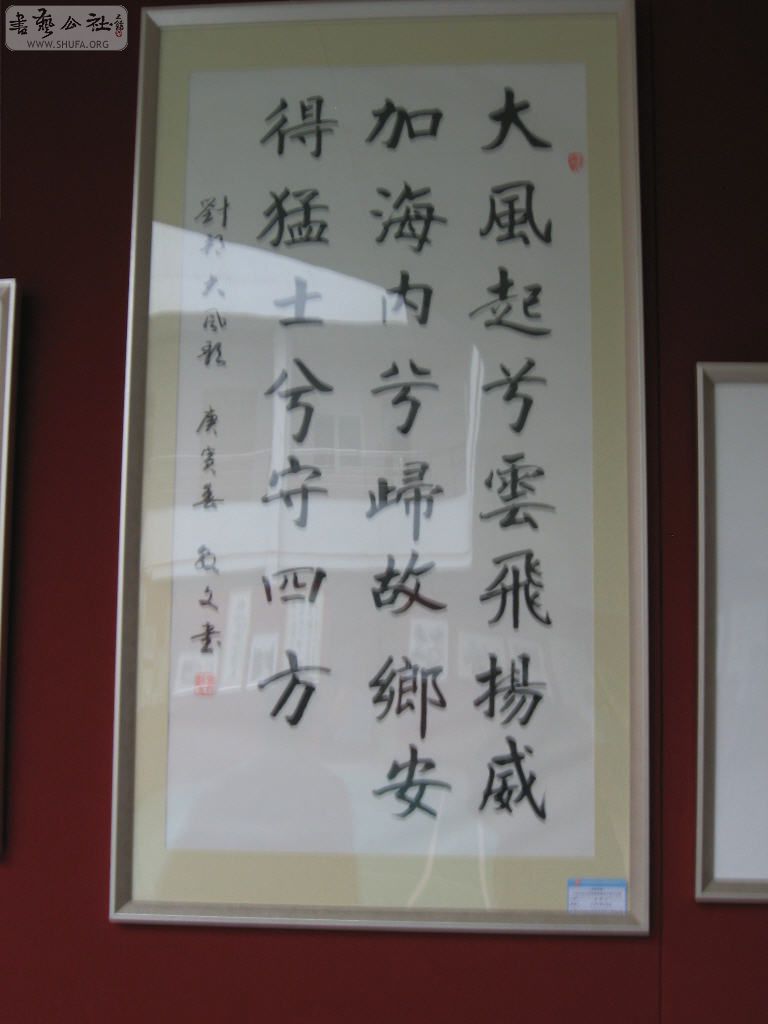 大風起兮雲飛揚威
加海内兮歸故鄉安
得猛士兮守四方
劉邦大风歌 庚寅春 敏文书
書藝公社
WWW.SHUFA.ORG